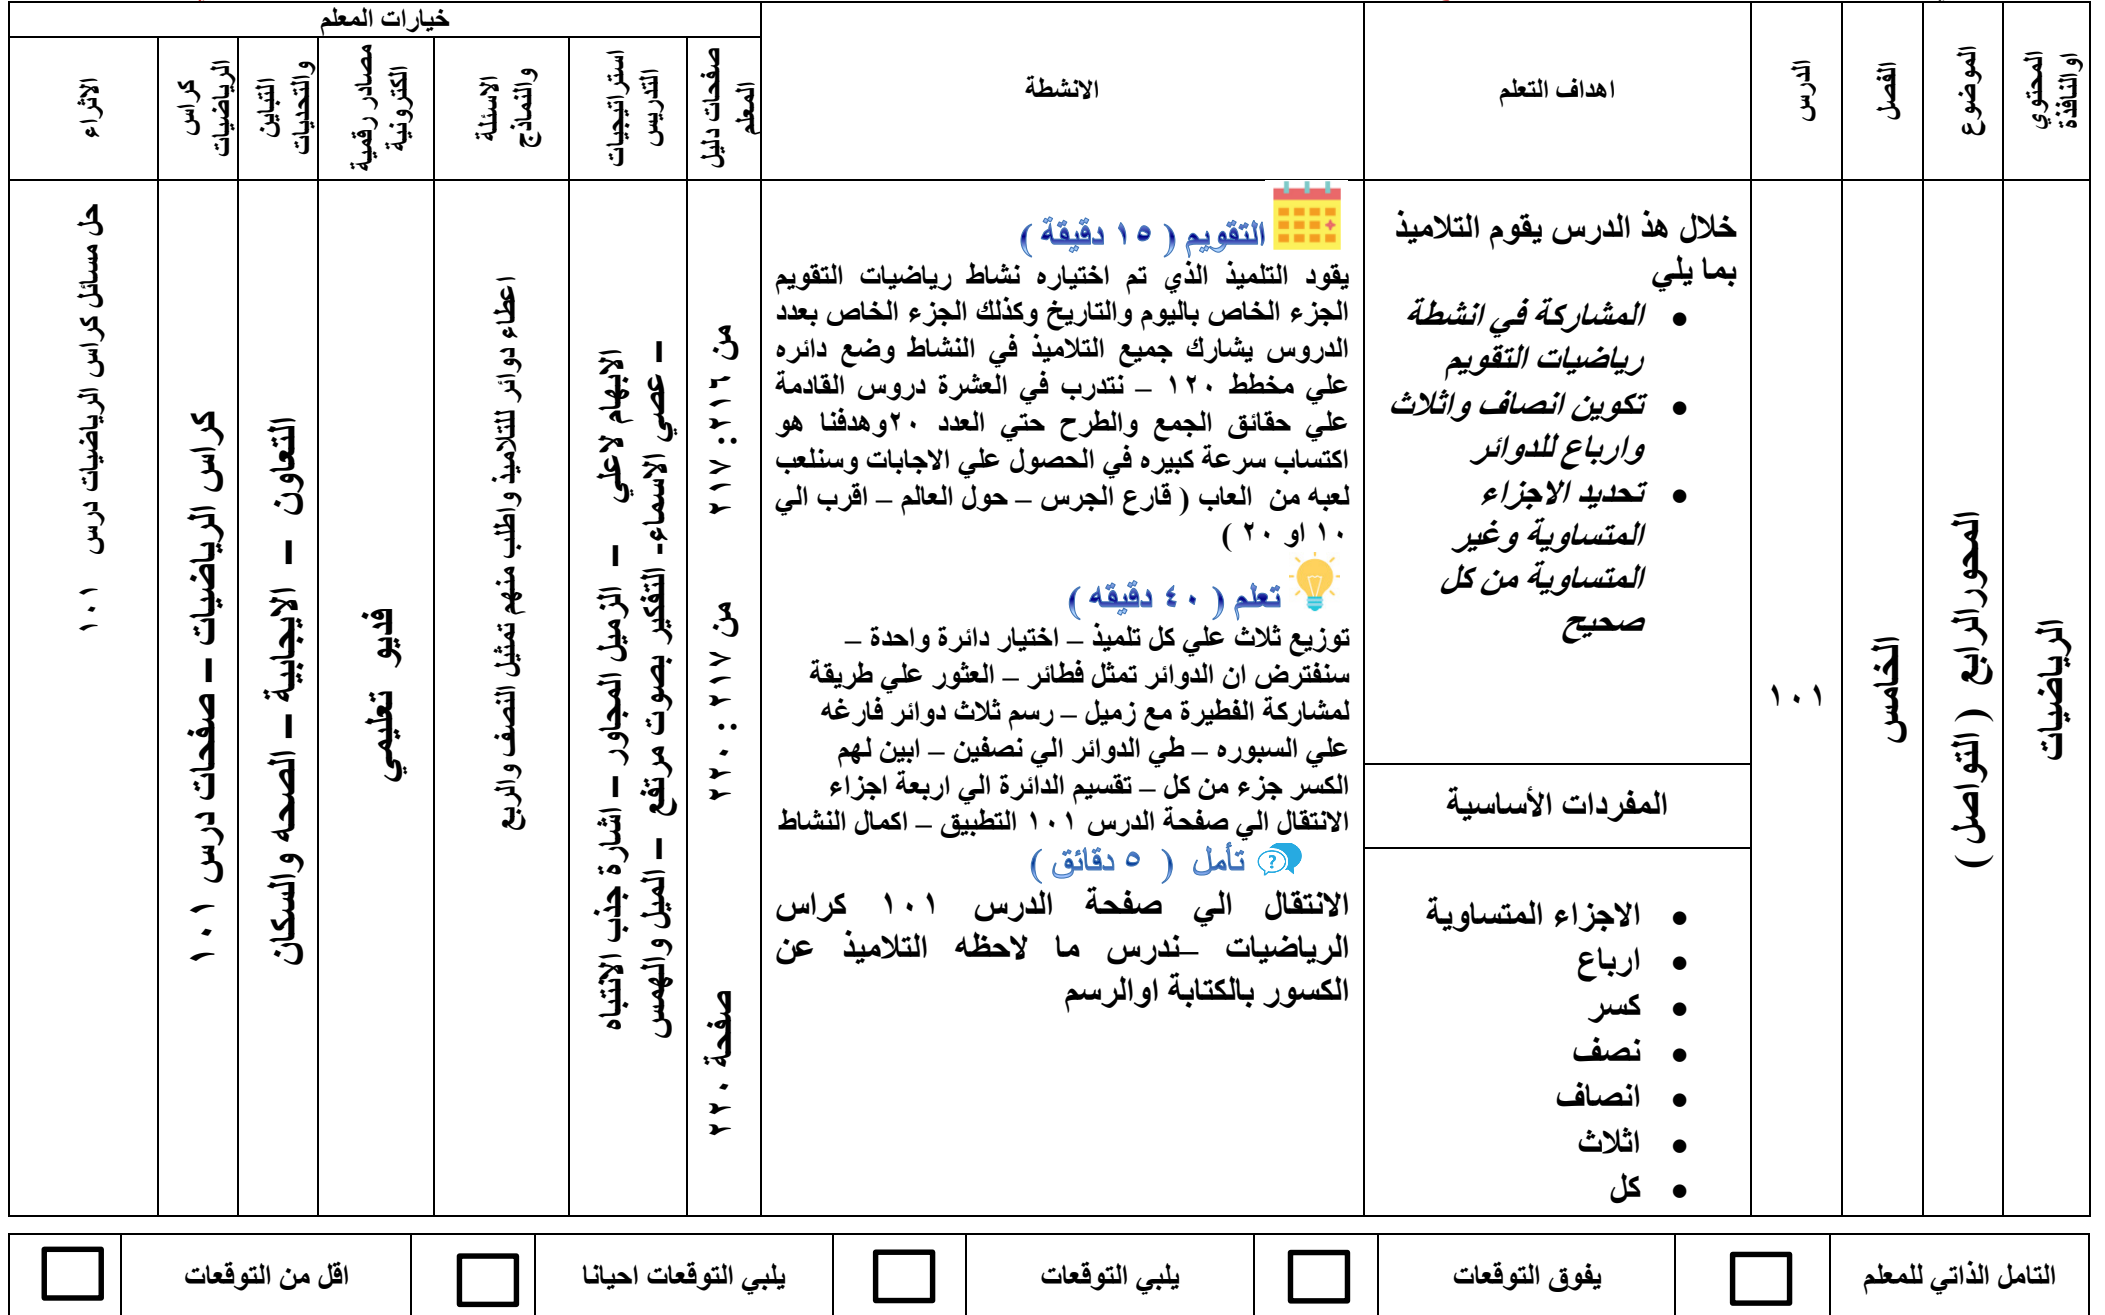 المحتوي
او النافذة
الموضوع
الفصل
الدرس
اهداف التعلم
الانشطة
خيارات المعلم
صفحات دليل
المعلم
استراتيجيات
التدريس
الاسئلة
والنماذج
مصادر رقمية
الكترونية
التباين
والتحديات
كراس
الرياضيات
الاثراء
الرياضيات
المحور الرابع ( التواصل )
الخامس
١٠١
خلال هذ الدرس يقوم التلاميذ
بما يلي
• المشاركة في انشطة
رياضيات التقويم
• تكوين انصاف واثلاث
وارباع للدوائر
• تحديد الاجزاء
المتساوية وغير
المتساوية من كل
صحيح
المفردات الأساسية
• الاجزاء المتساوية
• ارباع
• كسر
• نصف
• انصاف
• اثلاث
• كل
التقويم ( ١٥ دقيقة )
يقود التلميذ الذي تم اختياره نشاط رياضيات التقويم
الجزء الخاص باليوم والتاريخ وكذلك الجزء الخاص بعدد
الدروس يشارك جميع التلاميذ في النشاط وضع دائره
علي مخطط ١٢٠ – نتدرب في العشرة دروس القادمة
علي حقائق الجمع والطرح حتي العدد ٢٠وهدفنا هو
اكتساب سرعة كبيره في الحصول علي الاجابات وسنلعب
لعبه من العاب ( قارع الجرس – حول العالم – اقرب الي
١٠ او ٢٠ )
تعلم ( ٤٠ دقيقه )
توزيع ثلاث علي كل تلميذ – اختيار دائرة واحدة –
سنفترض ان الدوائر تمثل فطائر – العثور علي طريقة
لمشاركة الفطيرة مع زميل – رسم ثلاث دوائر فارغه
علي السبوره – طي الدوائر الي نصفين – ابين لهم
الكسر جزء من كل – تقسيم الدائرة الي اربعة اجزاء
الانتقال الي صفحة الدرس ١٠١ التطبيق – اكمال النشاط
تأمل ( ٥ دقائق )
الانتقال الي صفحة الدرس ١٠١ كراس
الرياضيات –ندرس ما لاحظه التلاميذ عن
الكسور بالكتابة اوالرسم
من ٢١٦: ٢١٧
من ٢١٧ : ٢٢٠
صفحة ٢٢٠
الابهام لاعلي – الزميل المجاور – اشارة جذب الانتباه
– عصي الاسماء- التفكير بصوت مرتفع – الميل والهمس
اعطاء دوائر للتلاميذ واطلب منهم تمثيل النصف والربع
فديو تعليمي
التعاون – الايجابية – الصحه والسكان
كراس الرياضيات – صفحات درس ١٠١
حل مسائل كراس الرياضيات درس ١٠١
التامل الذاتي للمعلم
يفوق التوقعات
يلبي التوقعات
يلبي التوقعات احيانا
اقل من التوقعات